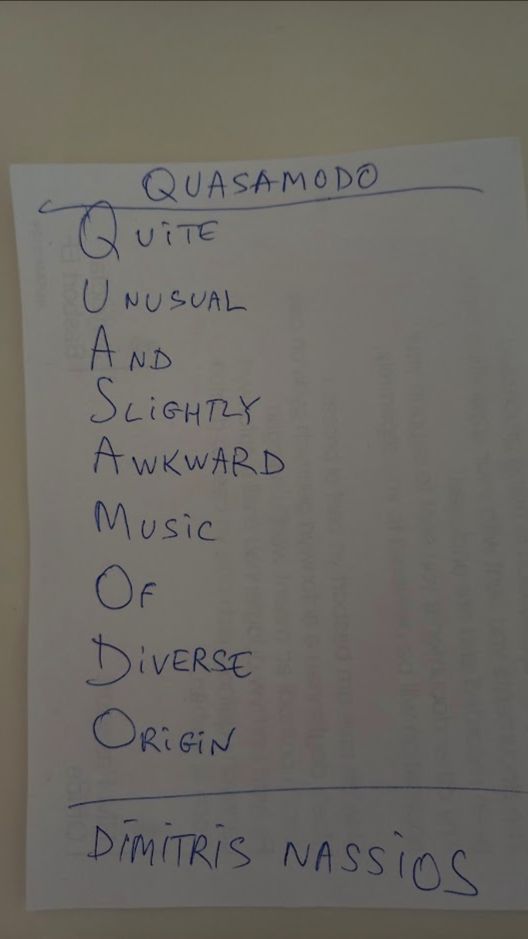 QUASAMODO
QUiTE
UNUSUAL
AND
SLiGHTLY
AWKWARD
MUSiC
OF
DiVERSE
ORiGiN
DiMiTRiS NASSiOS